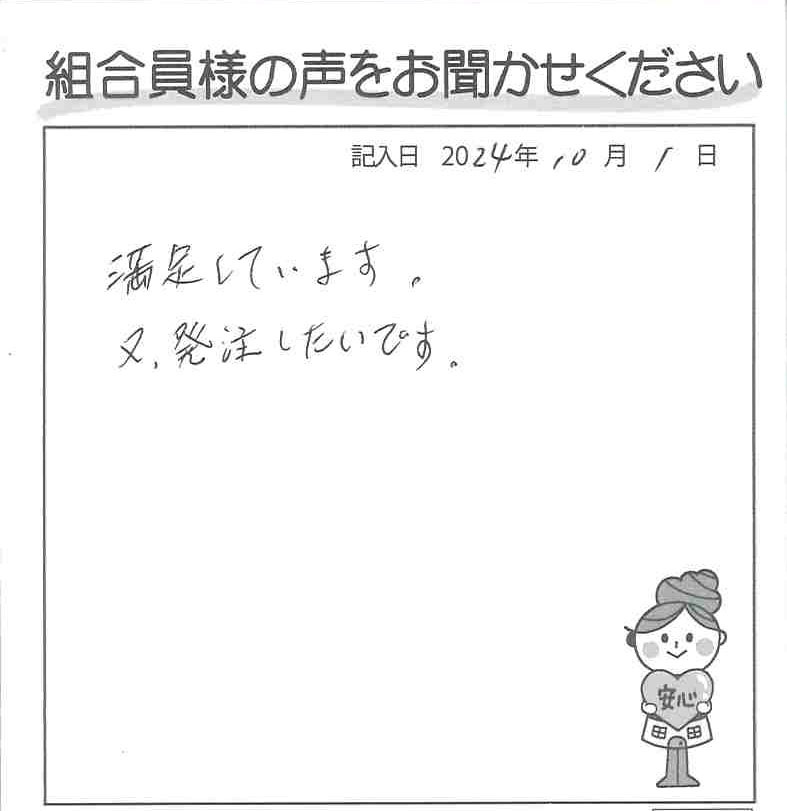 組合員様の声をお聞かせください
記入日 2024年10月1日
満足しています。
又、発注したいです。
安心